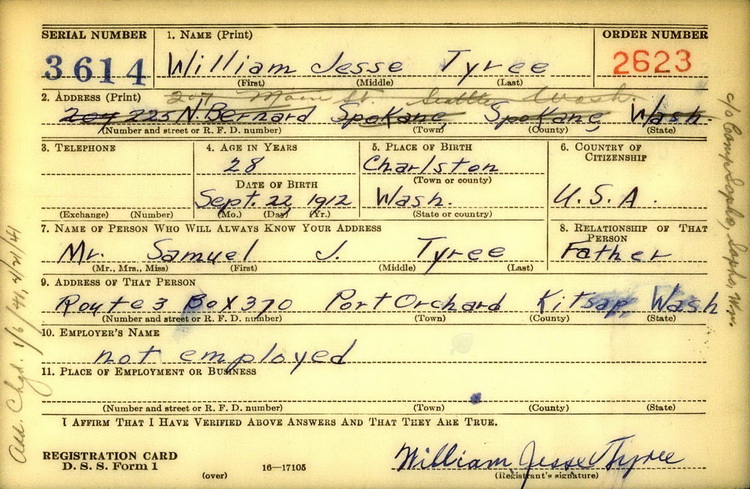 SERIAL NUMBER 1. NAME (Print) ORDER NUMBER
3614 William Jesse Tyree 2623
(First) (Middle) (Last)
2. ADDRESS (Print) 207 Main St. Seattle Wash.
207 225 N. Bernard Spokane, Spokane, Wash.
(Number and street or R. F. D. number) (Town) (County) (State)
3. TELEPHONE 4. AGE IN YEARS 5. PLACE OF BIRTH 6. COUNTRY OF CITIZENSHIP
28 Charlston
DATE OF BIRTH (Town or county)
Sept. 22, 1912 Wash. U.S.A.
(Exchange) (Number) (Mo.) (Day) (Yr.) (State or country)
7. NAME OF PERSON WHO WILL ALWAYS KNOW YOUR ADDRESS 8. RELATIONSHIP OF THAT PERSON
Mr. Samuel J. Tyree Father
(Mr., Mrs., Miss) (First) (Middle) (Last)
9. ADDRESS OF THAT PERSON
Route 3 Box 370 Port Orchard Kitsap, Wash
(Number and street or R. F. D. number) (Town) (County) (State)
10. EMPLOYER'S NAME
not employed
11. PLACE OF EMPLOYMENT OR BUSINESS
(Number and street or R. F. D. number) (Town) (County) (State)
I AFFIRM THAT I HAVE VERIFIED ABOVE ANSWERS AND THAT THEY ARE TRUE.
REGISTRATION CARD
D. S. S. Form 1 (over) 16—17105
William Jesse Tyree
(Registrant's signature)
Add. Chgd. 1/6/41, 4/2/41
c/o Camp Sapho, Sapho, Wn.